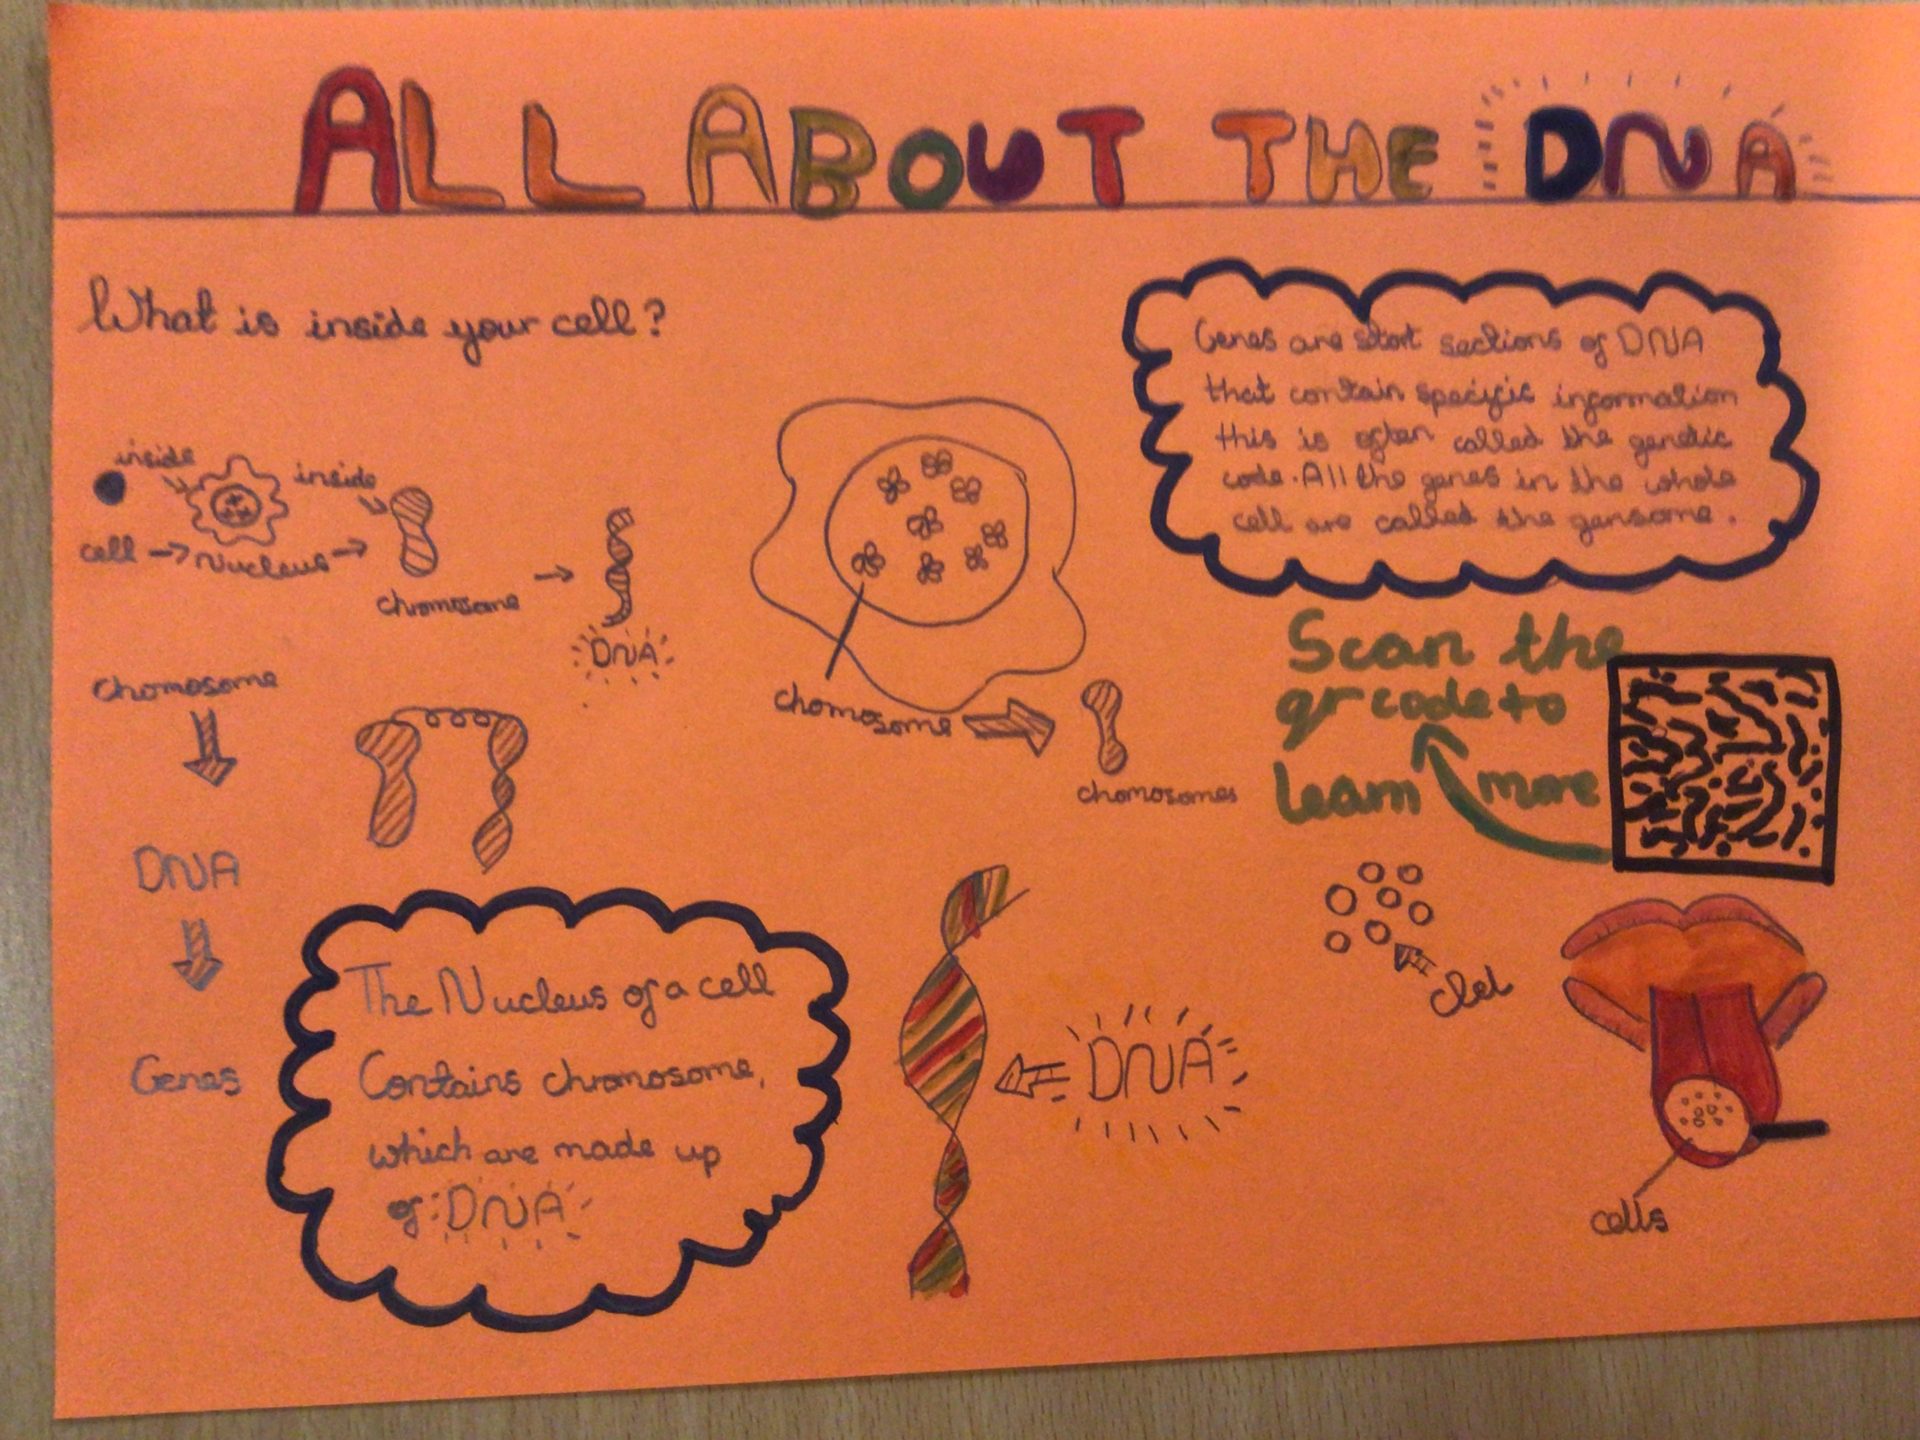 ALL ABOUT THE DNA
What is inside your cell?
Genes are short sections of DNA
that contain specific information
this is often called the genetic
code. All the genes in the whole
cell are called the gensome.
inside
inside
cell → Nucleus →
chromosome →
DNA
chomosome
DNA
Genes
chomosome
chomosomes
Scan the
qr code to
learn more
The Nucleus of a cell
Contains chromosome,
which are made up
of DNA
DNA
cells